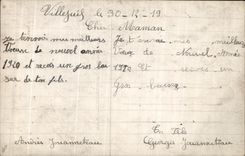 Villejuif le 30-12-19
Cher Maman
je t'envoie mes meilleurs
Vœux de nouvel année
1920 et reçois un gros bai
ser de ton fils.
André Jouanneteau
Je t'envoie mes meilleurs
Vœux de Nouvel Année
1920 Et reçois un
Gros baiser
Ton Fils
Georges Jouanneteau